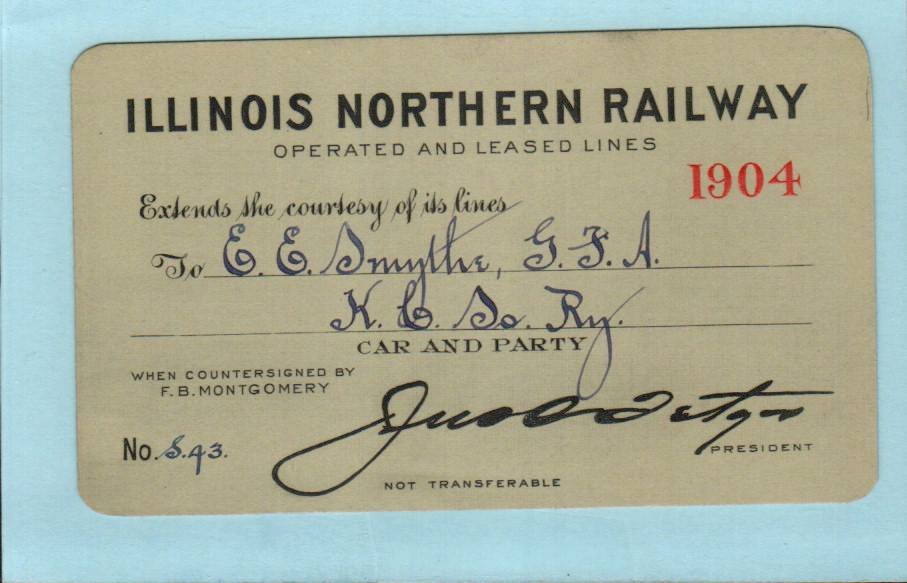 ILLINOIS NORTHERN RAILWAY
OPERATED AND LEASED LINES
1904
Extends the courtesy of its lines
To E. E. Smythe, G. F. A.
K. C. So. Ry.
CAR AND PARTY
WHEN COUNTERSIGNED BY
F. B. MONTGOMERY
No. S.43.
PRESIDENT
NOT TRANSFERABLE